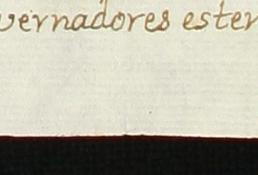 vernadores ester